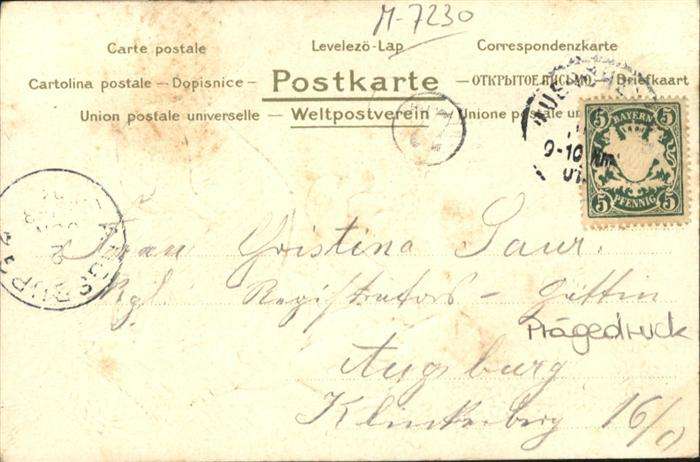 M-7230
Carte postale Levelezö-Lap Correspondenzkarte
Cartolina postale — Dopisnice — Postkarte — ОТКРЫТОЕ ПИСЬМО — Briefkaart
Union postale universelle — Weltpostverein — Unione postale
5 BAYERN 5
5 PFENNIG 5
9-10 Nm
01
AUGSBURG 2
Frau Cristina Saur.
Kgl. Registrators-Gattin
Prägedruck
Augsburg
Klinkerberg 16/0